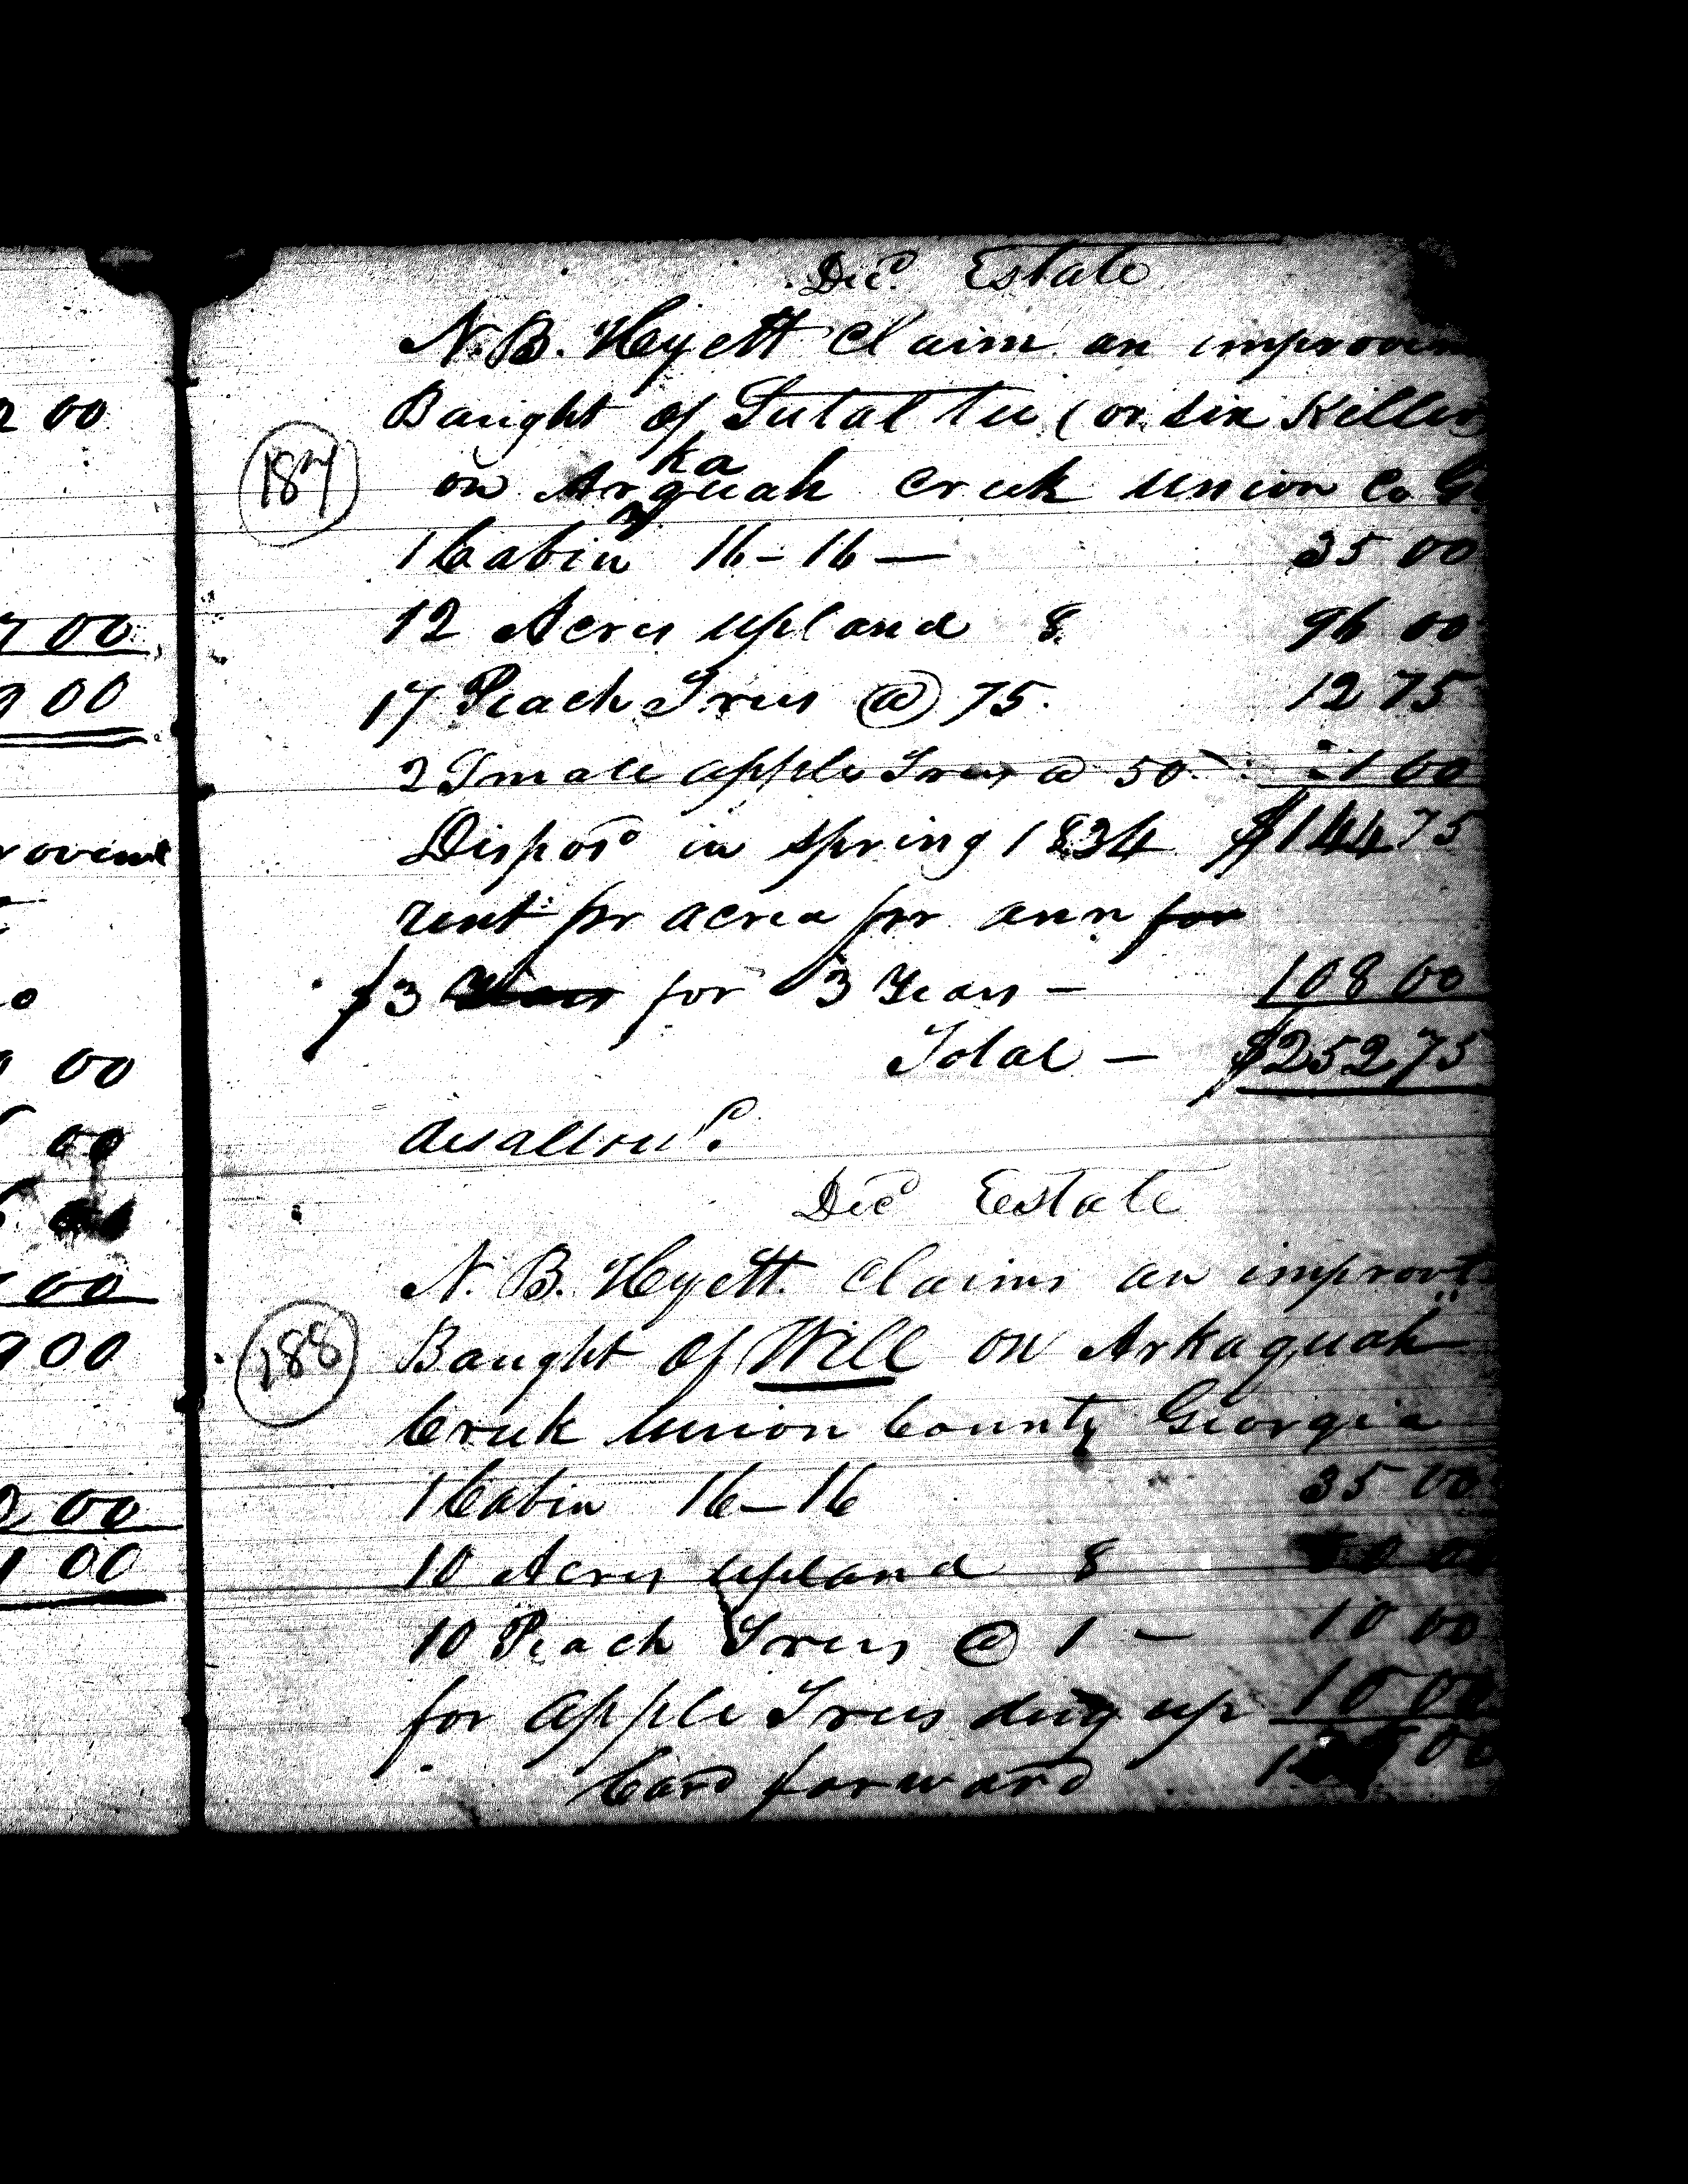 2 00
7 00
9 00
rovemt
00
00
00
900
00
1 00
Decd. Estate
N.B. Hyett Claim an improvem
Baught of Sutal tee (or six Killer)
187
ka
on Arquah Creek Union Co Ga
1 Cabin 16-16 — 35 00
12 Acres upland 8 96 00
17 Peach Trees @ 75. 12 75
2 Small apple Trees @ 50 1 00
Disposd in spring 1834 $144 75
rent pr acrea pr ann for
$3 Years for 3 Years — 108 00
Total — $252 75
disallowd.
Decd Eestate
N. B. Hyett. Claims an improvt
188
Baught of Will on Arkaquah
Creek Union County Georgia
1 Cabin 16-16 35 00
10 Acres upland 8
10 Peach Trees @ 1 — 10 00
for apple Trees dug up 10 00
Card forward